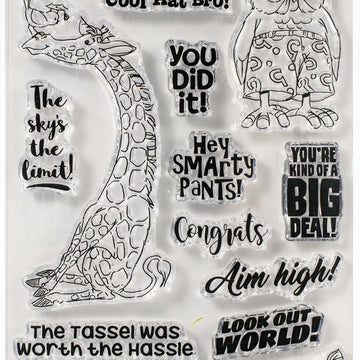 Cool Hat Bro!
YOU
DID
it!
The
sky's
the
limit!
Hey
SMARTY
PANTS!
YOU'RE
KIND OF A
BIG
DEAL!
Congrats
Aim high!
LOOK OUT
WORLD!
The Tassel was
worth the Hassle